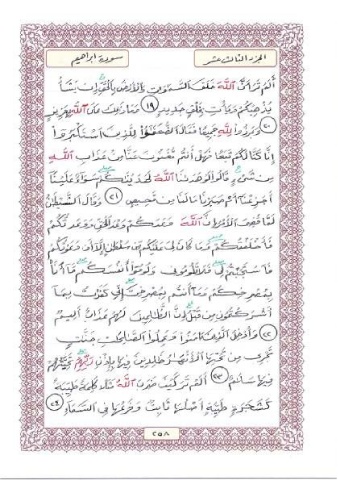 سورة ابراهيم الجزء الثالث عشر
ألم تر أن الله خلق السموت والأرض بالحق إن يشأ
يذهبكم ويأت بخلق جديد ١٩ وما ذلك على الله بعزيز
٢٠ وبرزوا لله جميعا فقال الضعفؤا للذين استكبروا
إنا كنا لكم تبعا فهل أنتم مغنون عنا من عذاب الله
من شيء قالوا لو هدىنا الله لهدينكم سواء علينا
أجزعنا أم صبرنا ما لنا من محيص ٢١ وقال الشيطن
لما قضي الأمر إن الله وعدكم وعد الحق ووعدتكم
فأخلفتكم وما كان لي عليكم من سلطن إلا أن دعوتكم
فاستجبتم لي فلا تلوموني ولوموا أنفسكم ما أنا
بمصرخكم وما أنتم بمصرخي إني كفرت بما
أشركتمون من قبل إن الظلمين لهم عذاب أليم
٢٢ وأدخل الذين ءامنوا وعملوا الصلحت جنت
تجري من تحتها الأنهر خلدين فيها بإذن ربهم تحيتهم
فيها سلم ٢٣ ألم تر كيف ضرب الله مثلا كلمة طيبة
كشجرة طيبة أصلها ثابت وفرعها في السماء ٢٤
٢٥٨